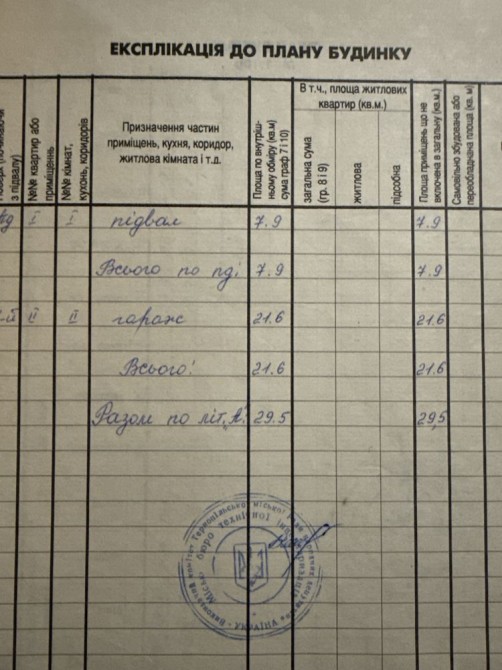 ЕКСПЛІКАЦІЯ ДО ПЛАНУ БУДИНКУ
з підвалу)
№№ квартир або
приміщення
№№ кімнат,
кухонь, коридорів
Призначення частин
приміщень, кухня, коридор,
житлова кімната і т.д.
Площа по внутріш-
ньому обміру (кв.м)
сума граф 7 і 10)
В т.ч., площа житлових
квартир (кв.м.)
загальна сума
(гр. 8 і 9)
житлова
підсобна
Площа приміщень що не
включена в загальну (кв.м.)
Самовільно збудована або
переобладнана площа (кв. м)
пд I I підвал 7.9 7.9
Всього по пд: 7.9 7.9
й II II гараж 21.6 21.6
Всього: 21.6 21.6
Разом по літ. А: 29.5 29,5
бюро технічної
УКРАЇНА